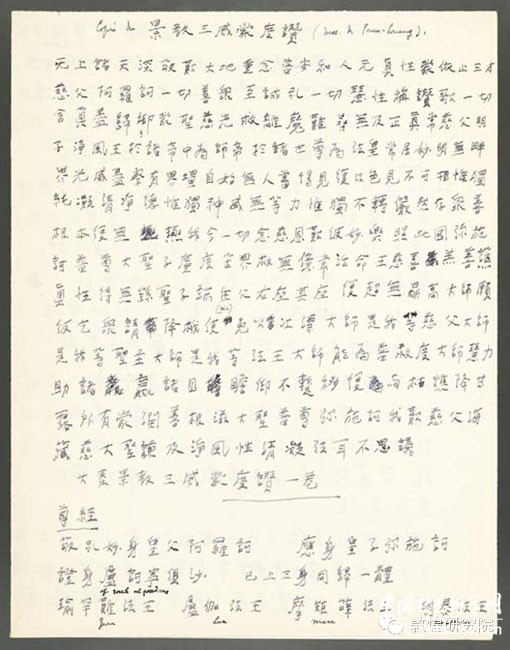 Copie du 景教三威蒙度讚 (mss. de Touen-houang).
无上諸天深敬歎大地重念普安和人元真性蒙依止三才
慈父阿羅訶一切善衆至誠礼一切慧性稱讚歌一切
含真盡歸仰蒙聖慈光救離魔難尋無及正真常慈父明
子淨風王於諸帝中為師帝於諸世尊為法皇常居妙明無畔
界光威盡察有界壃自始無人嘗得見復以色見不可相惟獨
純凝清淨德惟獨神威無等力惟獨不轉儼然存衆善
根本復無極我今一切念慈恩歎彼妙樂照此國弥施
訶普尊大聖子廣度苦界救無億常活命王慈喜羔善護
真性得無繇聖子端在父右座其座復超無鼎高大師願
彼乞衆請降栰使免火江漂大師是我等慈父大師
是我等聖主大師是我等法王大師能為普救度大師慧力
助諸羸諸目瞻仰不暫移復与枯燋降甘
露所有蒙潤善根滋大聖普尊弥施訶我歎慈父海
藏慈大聖謙及淨風性清凝法耳不思議
大秦景教三威蒙度讚一卷
尊經
敬礼妙身皇父阿羅訶 應身皇子弥施訶
證身盧訶寧俱沙 已上三身同歸一體
瑜罕難法王 盧伽法王 摩矩辭法王 明泰法王
Jean Luc Marc
敦煌研究院